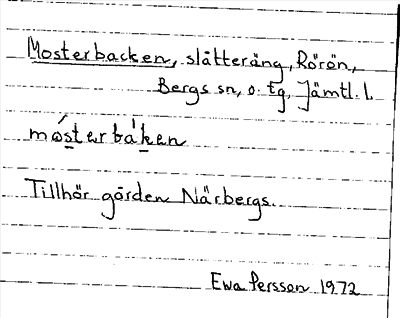 Mosterbacken, slåtteräng, Rörön,
Bergs sn, o. tg, Jämtl. l.
mósterbáken
Tillhör gården Närbergs.
Ewa Persson 1972